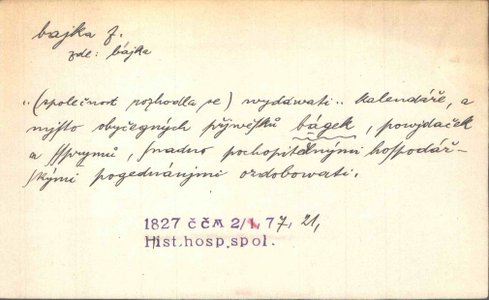 bajka f.
zde: bájka
„(společnost rozhodla se) wydáwati .. kalendáře, a
mjsto obyčegných přjwěsků bágek, powjdaček
a ſſprýmů, ſnadno pochopitelnými hoſpodář-
ſkými pogednánjmi ozdobowati.
1827 ČČM 2/1, 77, 21,
Hist.hosp.spol.